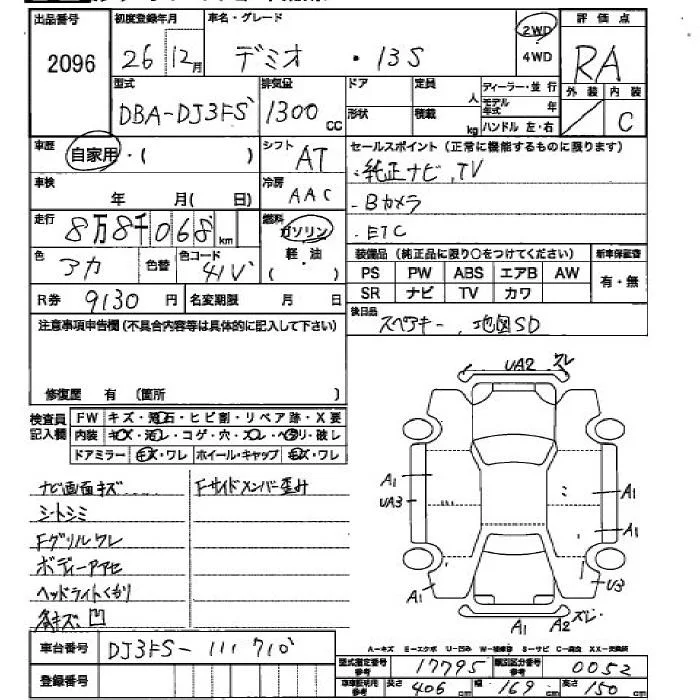 出品番号 初度登録年月 車名・グレード 評価点
2096 26年 12月 デミオ・13S 2WD 4WD RA
型式 排気量 ドア 定員 人 ディーラー・並 行 外装 内装
DBA-DJ3FS 1300cc 形状 積載 kg モデル年式 年 ハンドル 左・右 C
車歴 自家用・( ) シフト AT セールスポイント(正常に機能するものに限ります)
・純正ナビ、TV
車検 年 月( 日) 冷房 AAC ・Bカメラ
走行 8万8千068km 燃料 ガソリン ・ETC
色 アカ 色替 色コード 41V 軽・油 ( )
装備品(純正品に限り○をつけてください) 新車保証書
PS PW ABS エアB AW 有・無
SR ナビ TV カワ
R券 9130円 名変期限 月 日
後日品 スペアキー、地図SD
注意事項申告欄(不具合内容等は具体的に記入して下さい)
修復歴 有 (箇所 )
検査員記入欄 FW キズ・飛石・ヒビ割・リペア跡・X要
内装 キズ・汚レ・コゲ・穴・スレ・ヘタリ・破レ
ドアミラー キズ・ワレ ホイール・キャップ キズ・ワレ
ナビ画面キズ Fサイドメンバー歪み
シートシミ
Fグリルワレ
ボディーアセ
ヘッドライトくもり
各キズ凹
UA2 ズレ
A1 A1
UA3 A1
U3
A1 A1 A2 ズレ
車台番号 DJ3FS-111710
登録番号
A-キズ E-エクボ U-凹み W-補修跡 S-サビ C-腐食 XX-交換済
型式指定番号 参考 17795 類別区分番号 参考 0052
車車証明用 参考 長さ 406cm 幅 169cm 高さ 150cm